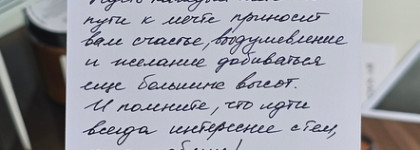 пути к мечте приносит
вам счастье, воодушевление
и желание добиваться
еще больших высот.
И помните, что идти
всегда интереснее с тем,